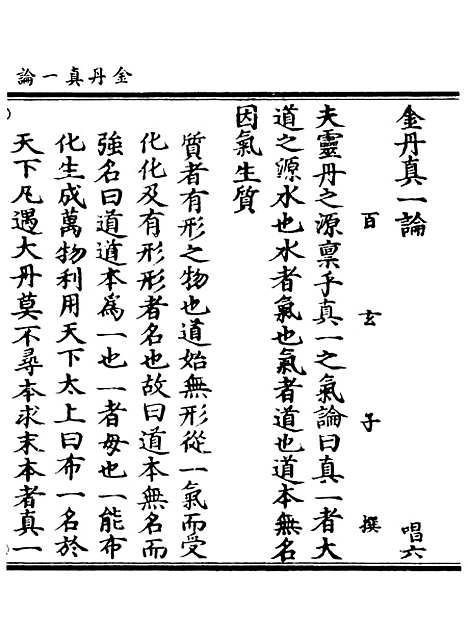 金丹真一論
金丹真一論 唱六
百玄子撰
夫靈丹之源禀乎真一之氣論曰真一者大
道之源水也水者氣也氣者道也道本無名
因氣生質
質者有形之物也道始無形從一氣而受
化化及有形形者名也故曰道本無名而
強名曰道道本為一也一者母也一能布
化生成萬物利用天下太上曰布一名於
天下凡遇大丹莫不尋本求末本者真一